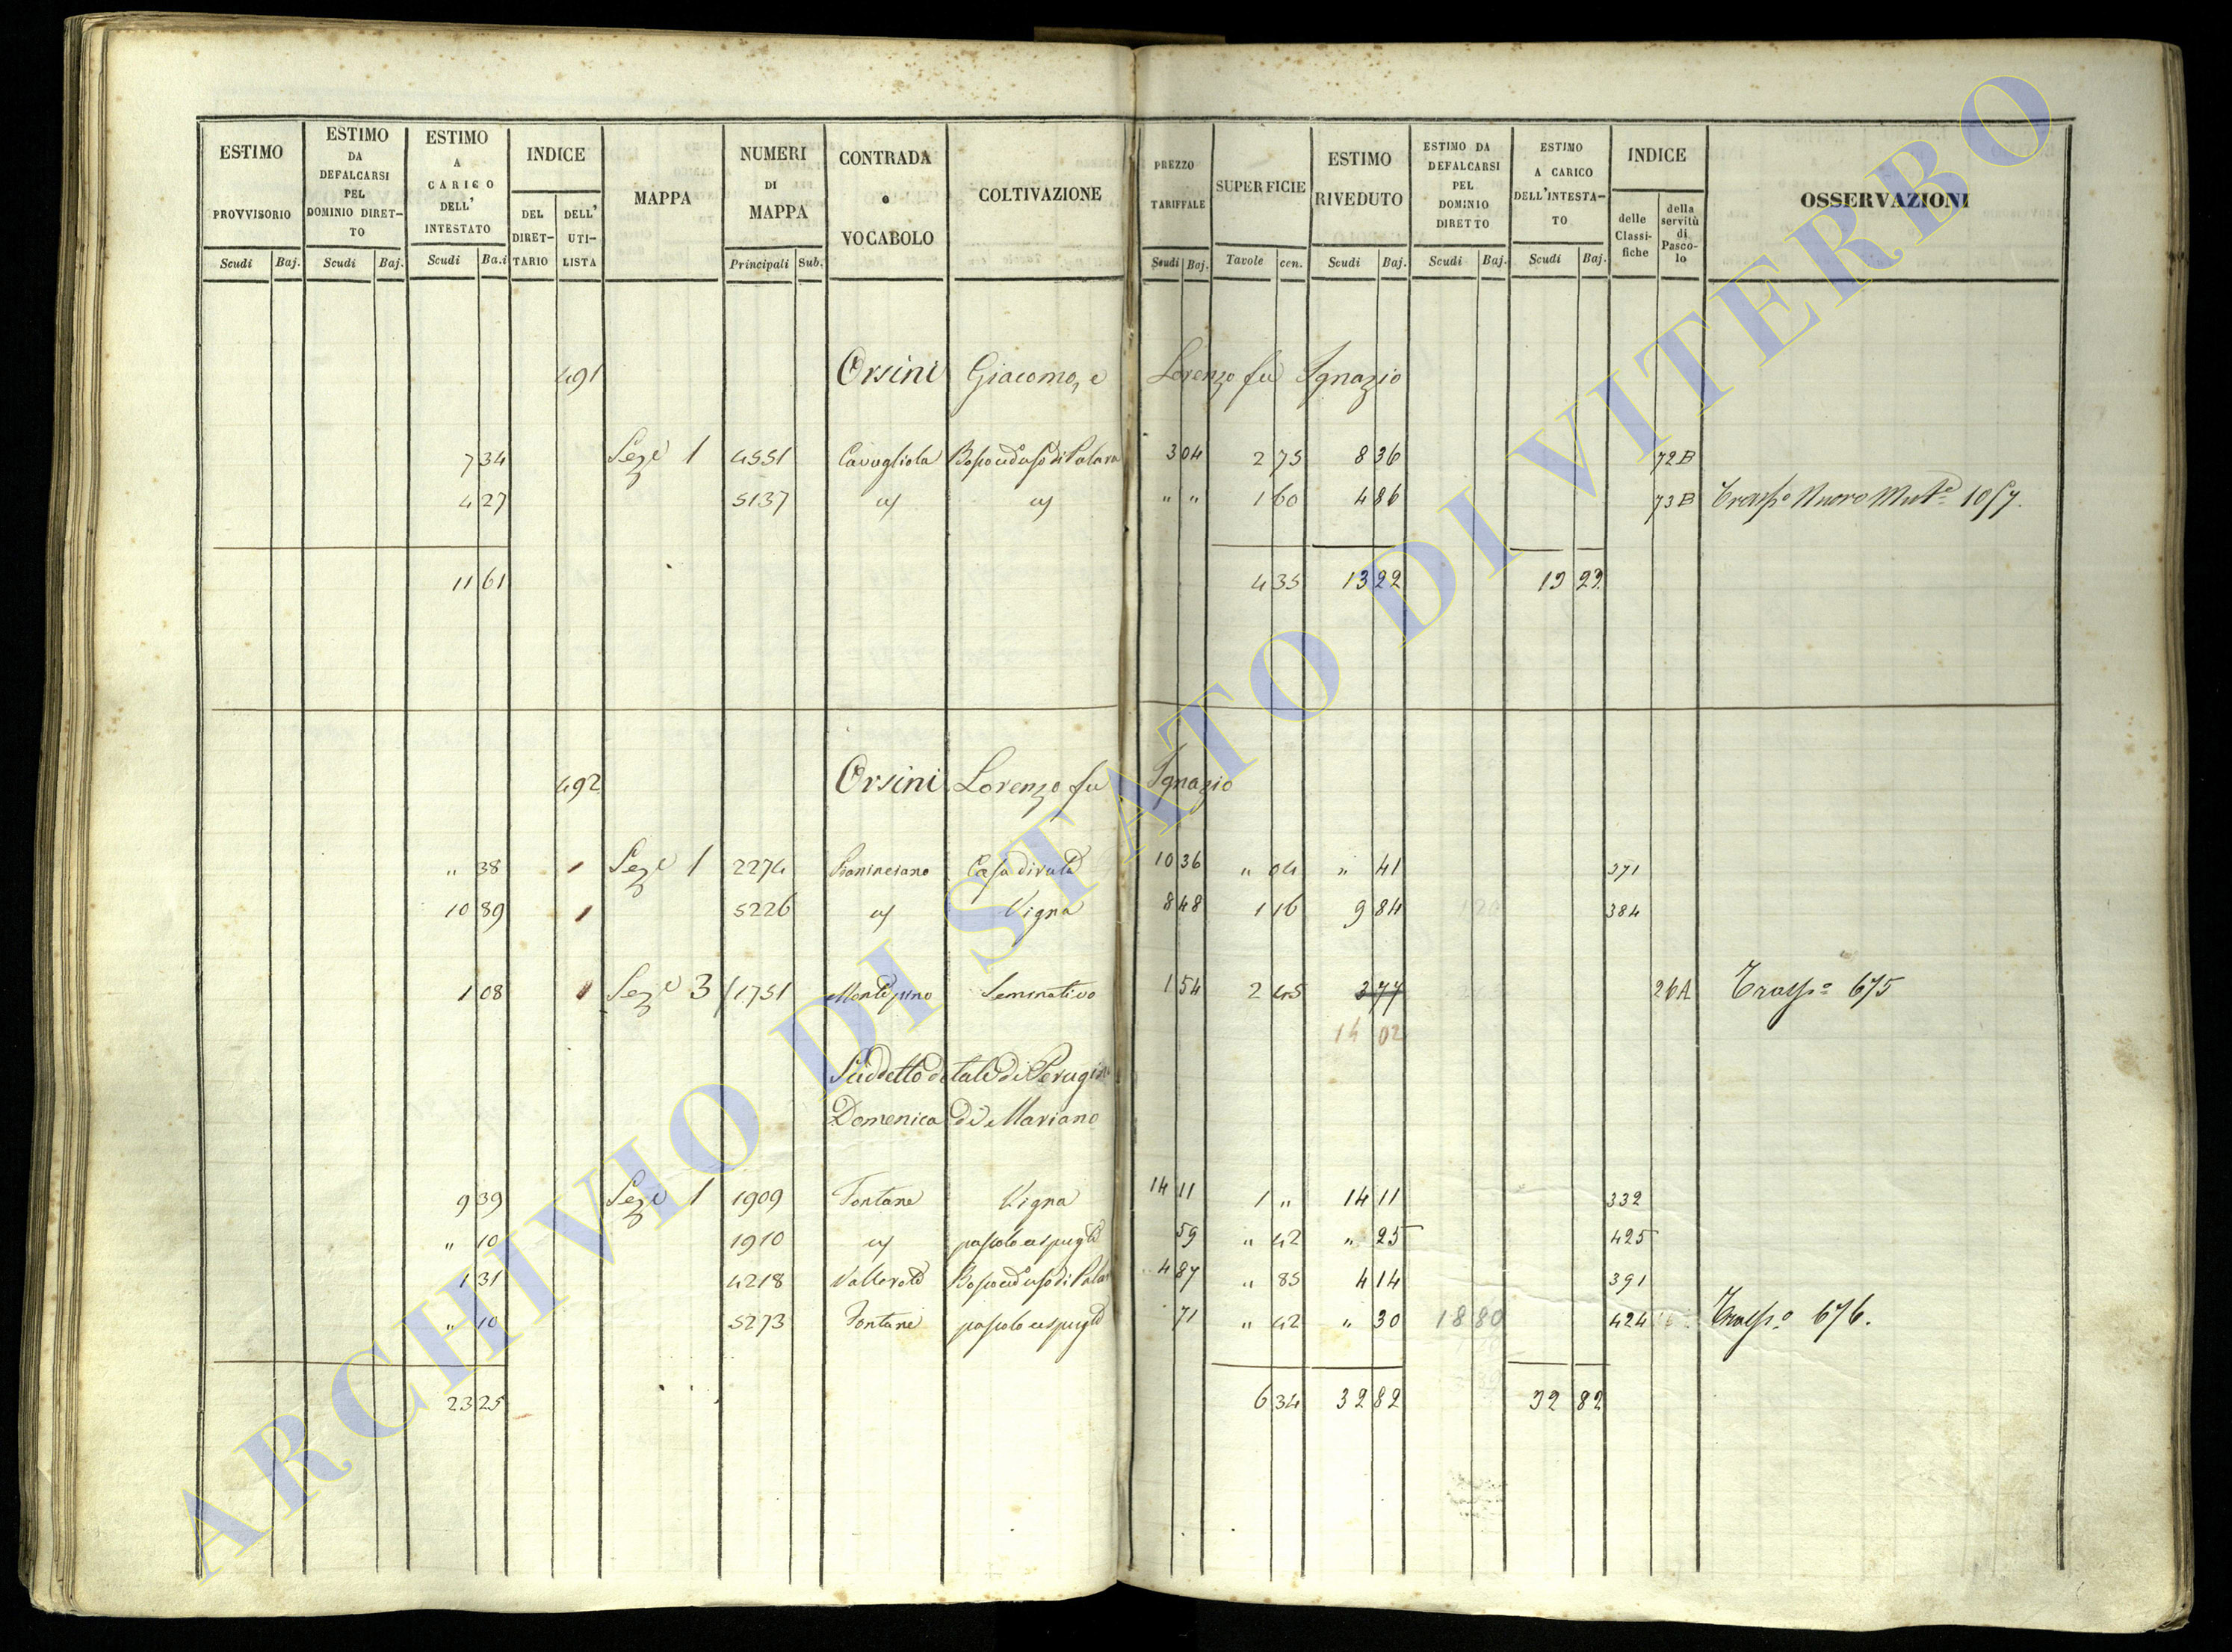 ESTIMO PROVVISORIO Scudi Baj.
ESTIMO DA DEFALCARSI PEL DOMINIO DIRETTO Scudi Baj.
ESTIMO A CARICO DELL' INTESTATO Scudi Ba.i
INDICE DEL DIRETTARIO DELL' UTILISTA
MAPPA
NUMERI DI MAPPA Principali Sub.
CONTRADA o VOCABOLO
COLTIVAZIONE
PREZZO TARIFFALE Scudi Baj.
SUPERFICIE Tavole cen.
ESTIMO RIVEDUTO Scudi Baj.
ESTIMO DA DEFALCARSI PEL DOMINIO DIRETTO Scudi Baj.
ESTIMO A CARICO DELL'INTESTATO Scudi Baj.
INDICE delle Classifiche della servitù di Pascolo
OSSERVAZIONI
491 Orsini Giacomo, e Lorenzo fu Ignazio
7 34 Seze 1 4551 Cavagliola Bosco ad uso di Palara 3 04 2 75 8 36 72B
4 27 5137 " " 1 60 4 86 73B Nuovo 1057.
11 61 4 35 13 22 13 22
492 Orsini Lorenzo fu Ignazio
" 38 1 Seze 1 2274 Casa dirute 10 36 " 04 " 41 371
10 89 1 5226 Vigna 8 48 1 16 9 84 384
1 08 1 Seze 3 1751 Monte pino Seminativo 1 54 2 45 3 77 26A Traspo 675
14 02
Suddetto dotale di Perugini
Domenica di Mariano
9 39 Seze 1 1909 Fontane Vigna 14 11 1 " 14 11 332
" 10 1910 pascolo cespugto 59 " 42 " 25 425
1 31 4218 Bosco ad uso di Palar 4 87 " 85 4 14 391
" 10 5273 Fontane pascolo cespugto 71 " 42 " 30 18 80 424 Traspo 676.
23 25 6 34 32 82 32 82
ARCHIVIO DI STATO DI VITERBO